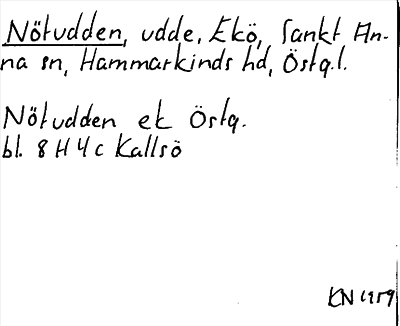 Nötudden, udde, Ekö, Sankt An-
na sn, Hammarkinds hd, Östg.l.
Nötudden ek Östg.
bl. 8H4c Kallsö
KN 1959